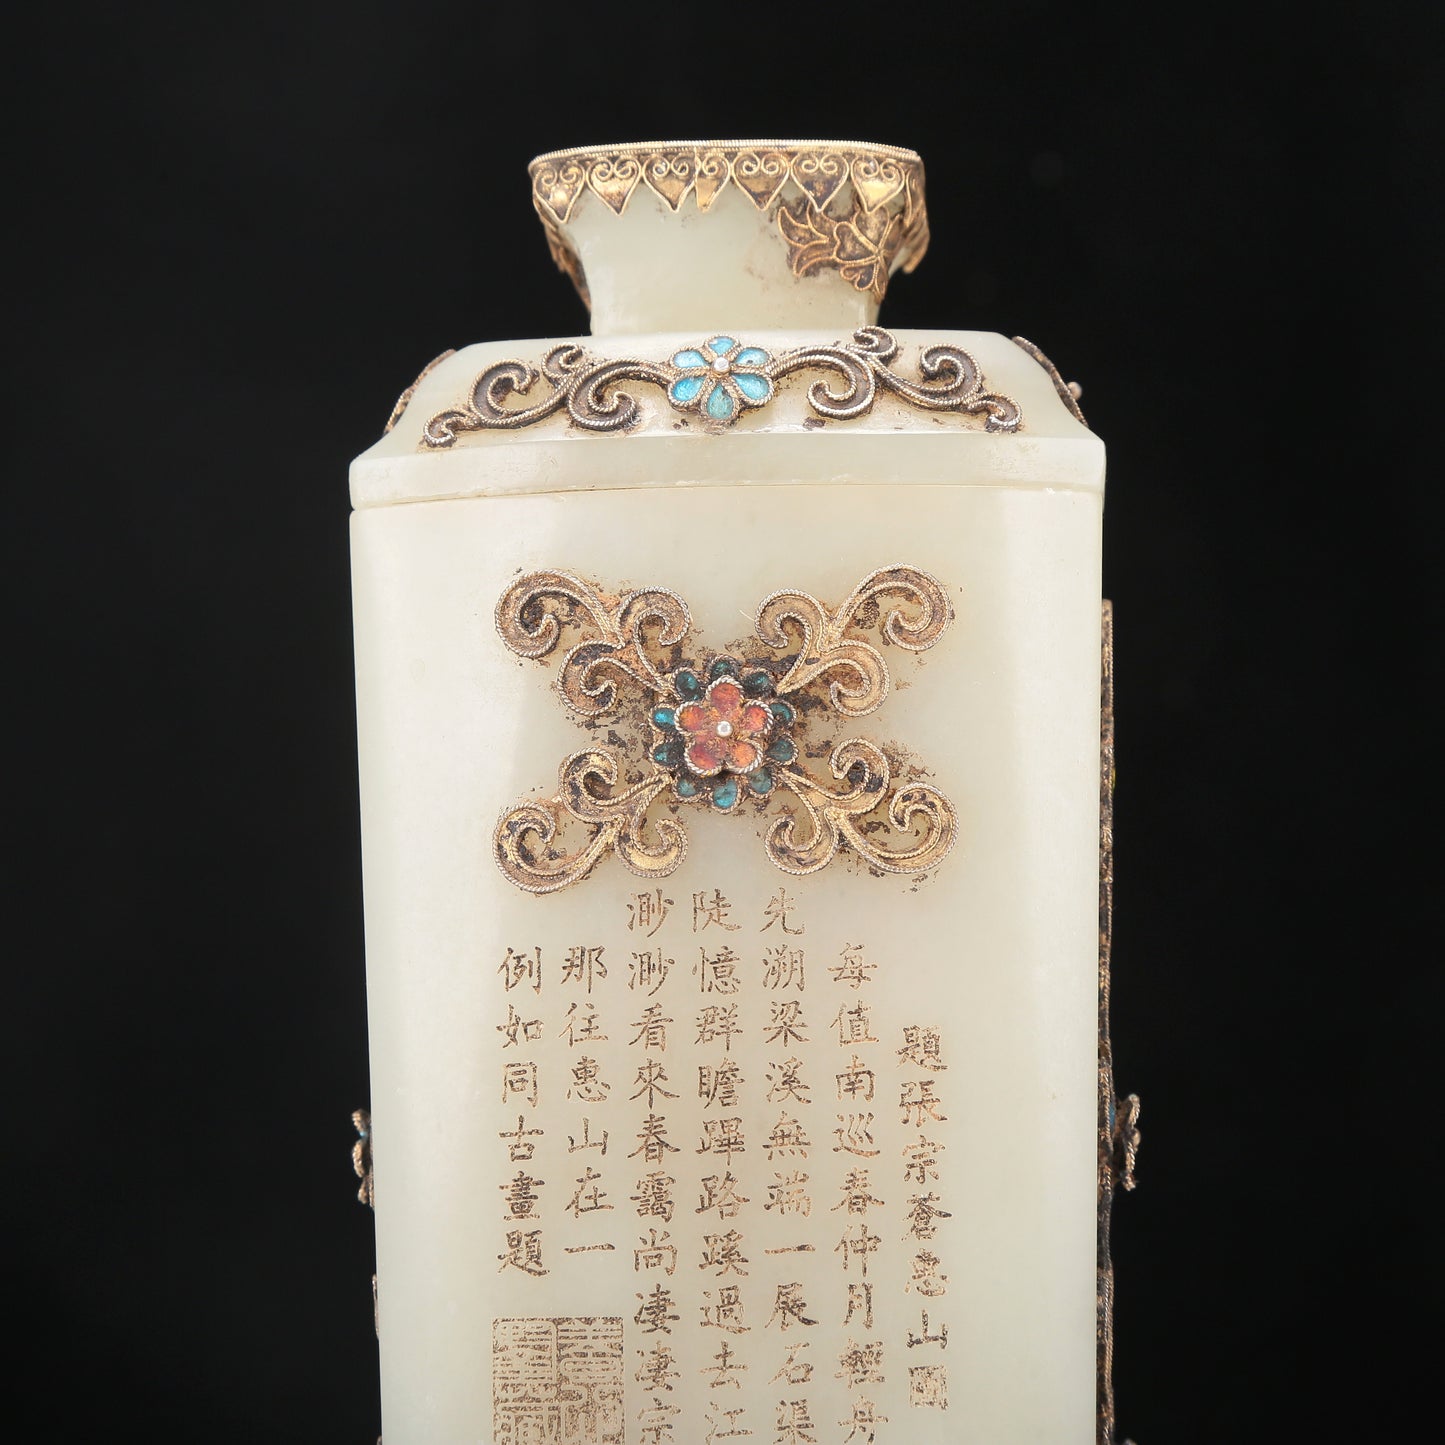 題張宗蒼惠山圖
每值南巡春仲月輕舟
先溯梁溪無端一展石渠
陡憶群瞻蹕路蹊過去江
渺渺看來春靄尚淒淒宗
那往惠山在一
例如同古畫題